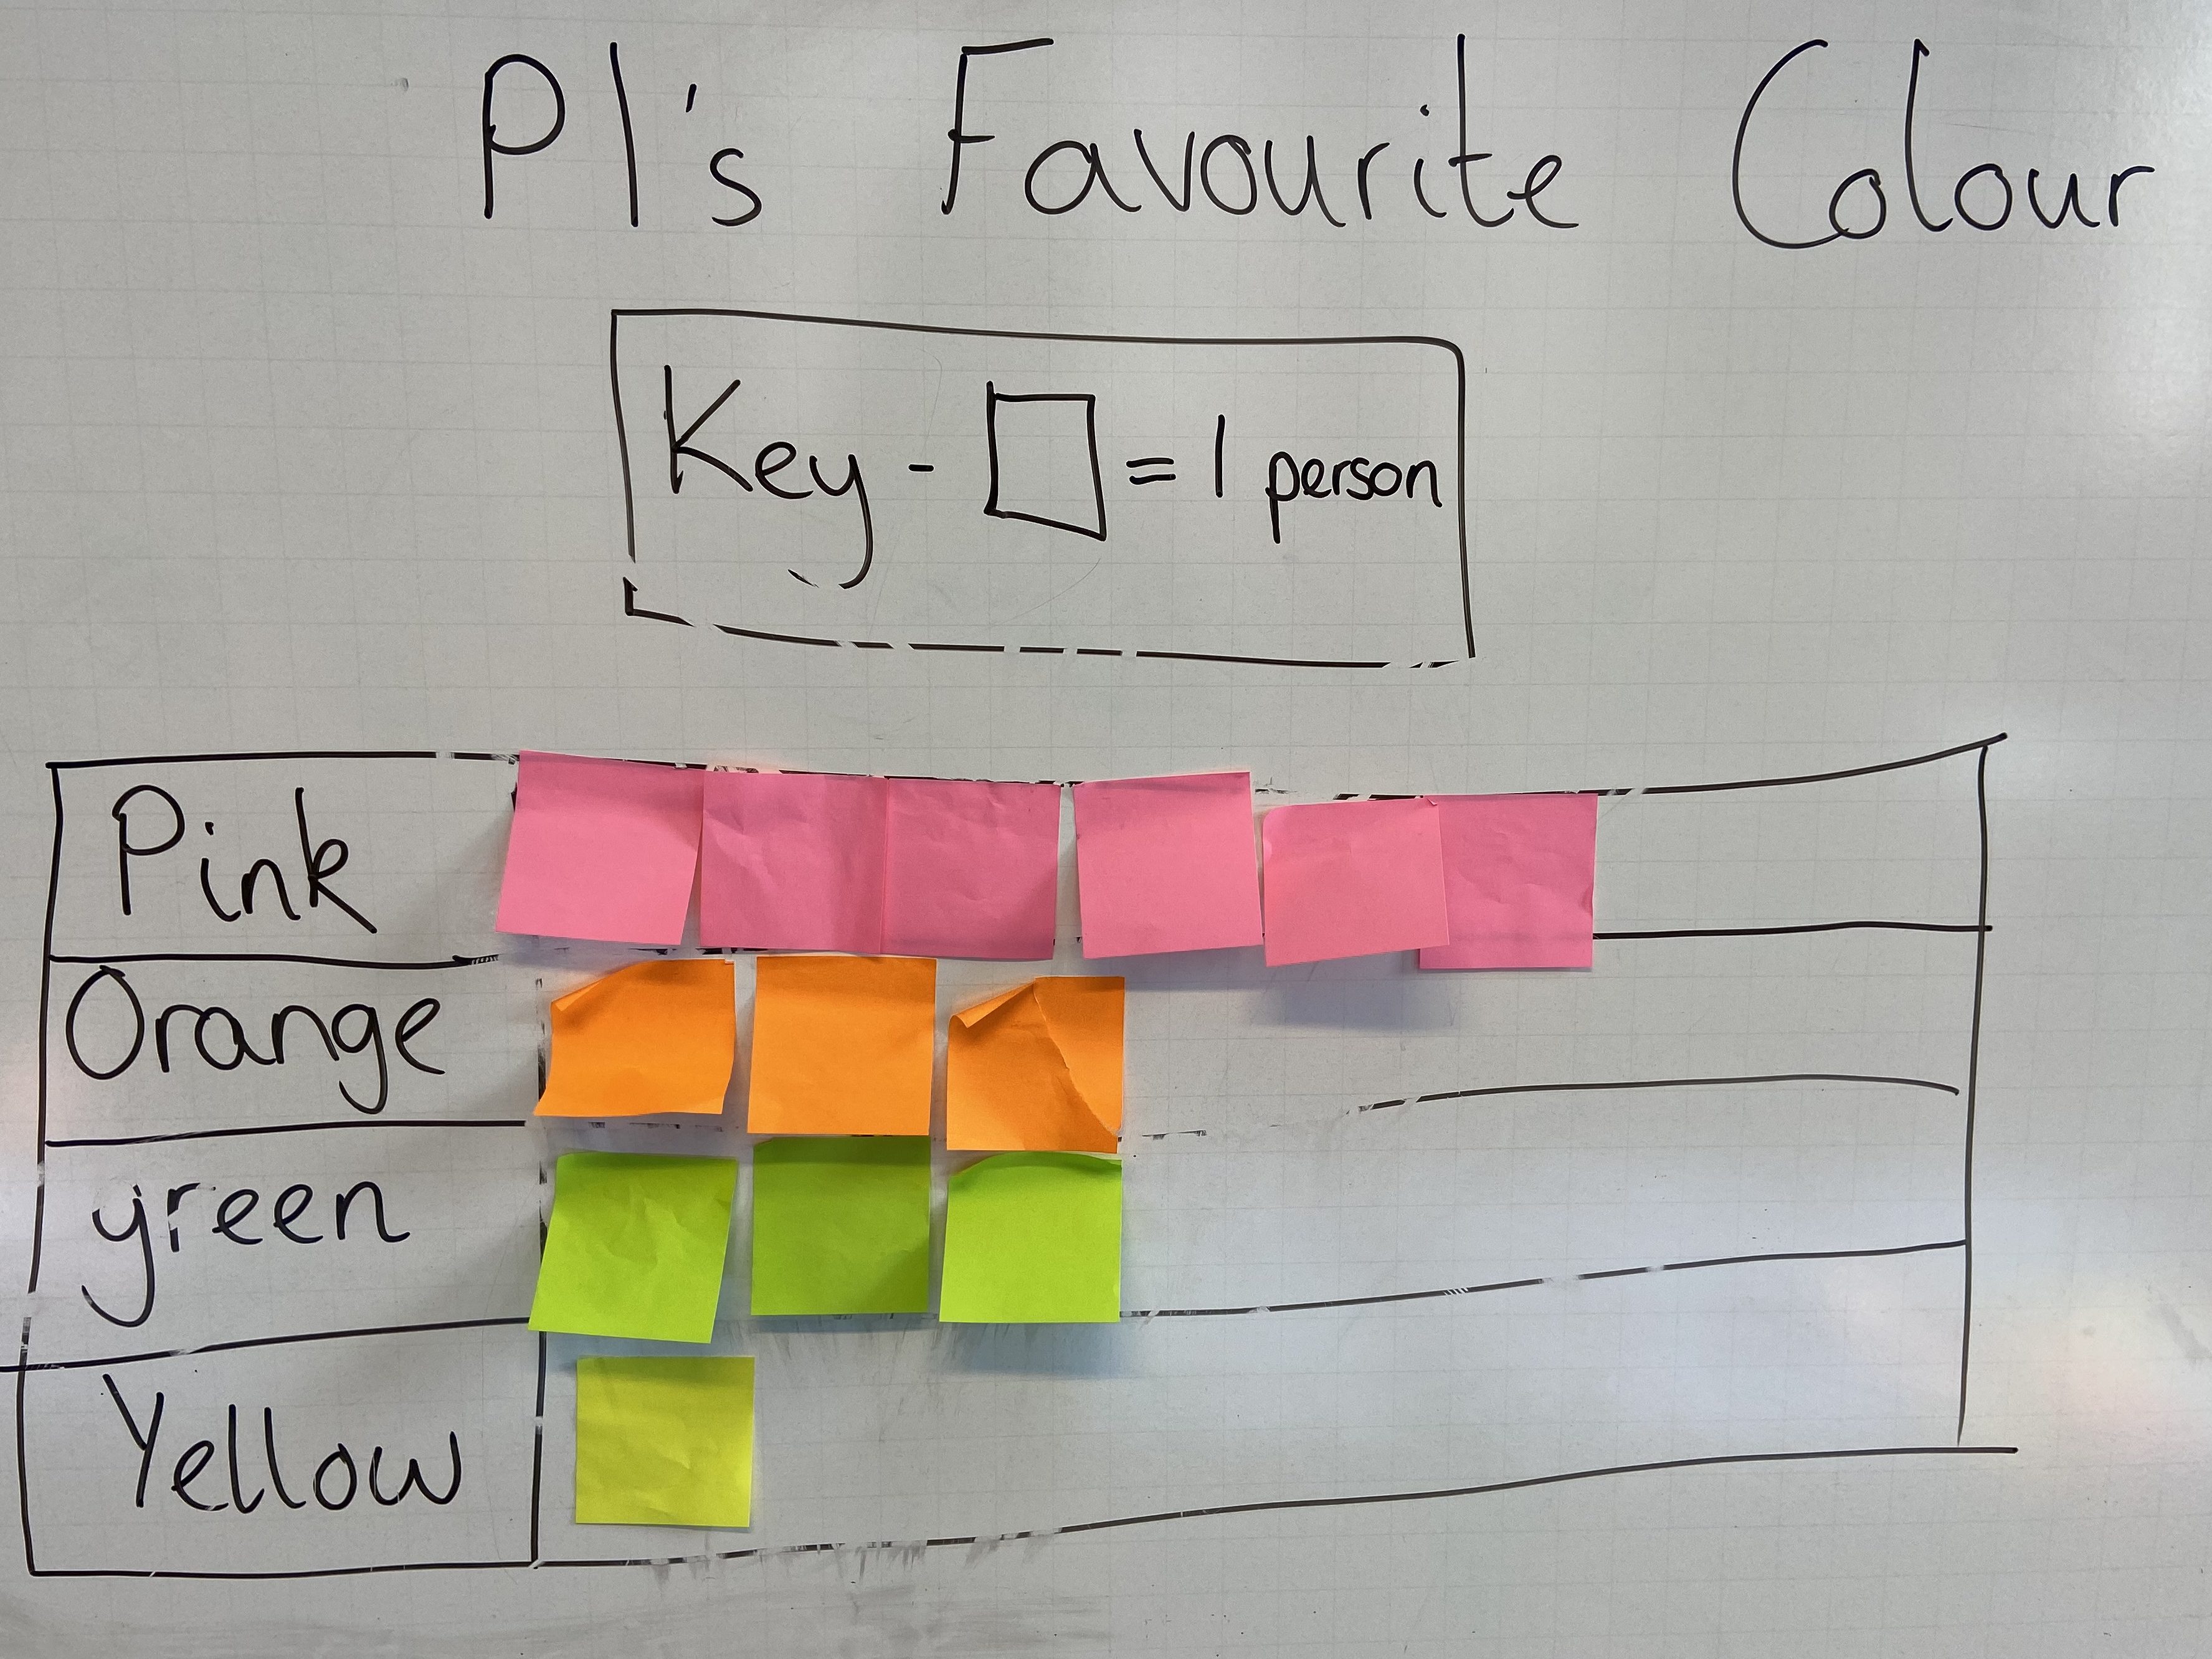 P1's Favourite Colour
Key - □ = 1 person
Pink
Orange
green
Yellow